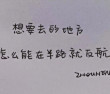 想要去的地方
怎么能在半路就返航